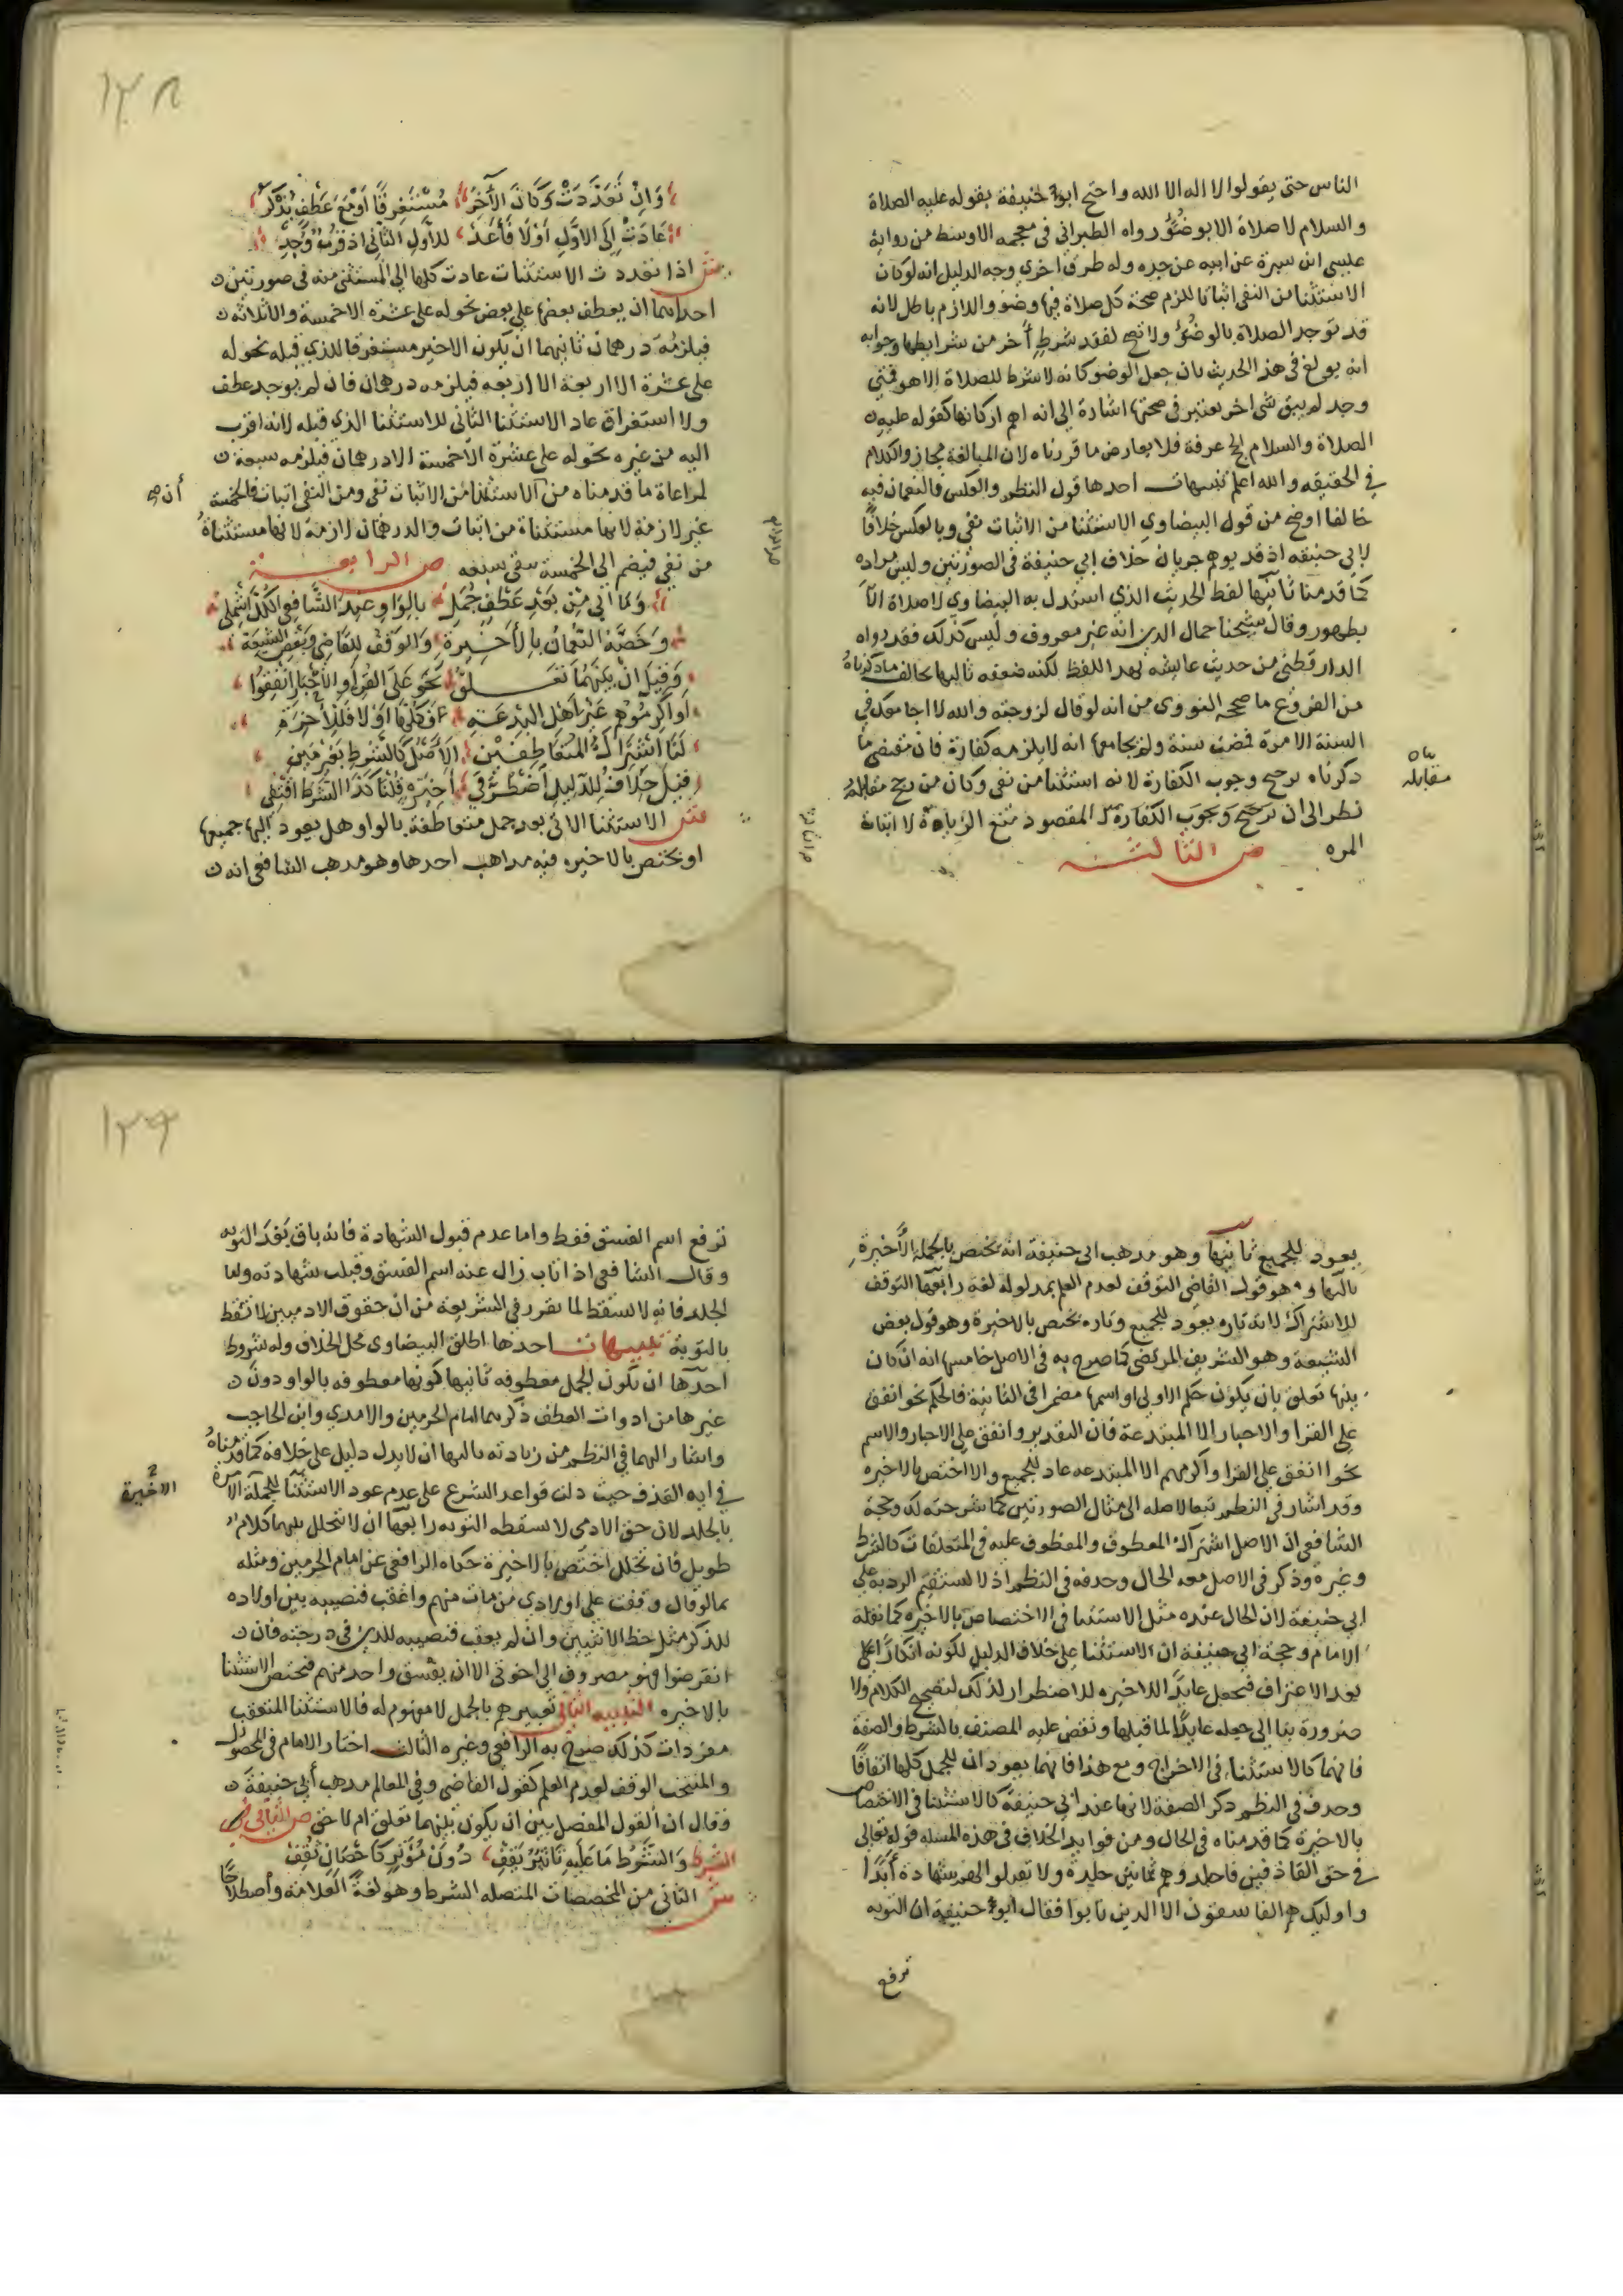 الناس حتى يقولوا لا اله الا الله واحتج ابو حنيفة بقوله عليه الصلاة
والسلام لا صلاة الا بوضؤ رواه الطبراني في معجمه الاوسط من رواية
عيسى ابن سبرة عن ابيه عن جده وله طرق اخري وجه الدليل انه لو كان
الاستثنا من النفي اثباتا للزم صحة كل صلاة فيها وضو واللازم باطل لانه
قد توجد الصلاة بالوضؤ ولا تصح لفقد شرط أخر من شرايطها وجوابه
انه بولغ في هذا الحديث بان جعل الوضو كانه لا شرط للصلاة الا هو فمتي
وجد لم يبق شي اخر يعتبر في صحتها اشارة الى انه اهم اركانها كقوله عليه
الصلاة والسلام الحج عرفة فلا يعارض ما قررناه لان المبالغة مجاز والكلام
في الحقيقه والله اعلم تنبيهات احدها قول النظم والعكس فالنعمان فيه
خالفا اوضح من قول البيضاوي الاستثنا من الاثبات نفي وبالعكس خلافا
لابي حنيفه اذ قد يوهم جريان خلاف ابي حنيفة في الصورتين وليس مراده
كما قدمنا ثانيها لفظ الحديث الذي استدل به البيضاوي لا صلاة الا
بطهور وقال شيخنا جمال الدين انه غير معروف وليس كذلك فقد رواه
الدارقطني من حديث عايشه بهذا اللفظ لكنه ضعفه ثالثها يخالف ما ذكرناه
من الفروع ما صححه النووى من انه لو قال لزوجته والله لا اجامعك في
السنة الا مرة فمضت سنة ولم يجامعها انه لا يلزمه كفارة فان مقتضى ما
ذكرناه ترجيح وجوب الكفارة لانه استثنا من نفي وكان من رجح مقابله
نظر الى ان المقصود منع الزيادة لا اثبات
المره ص الثالثـــة
بلغ
مقابله
١٣٨
وان تعددت وكان الآخر مستغرقا او مع عطف يذكر
عادت الى الاول اولا فأعد للأول الثاني اذ قرب وجد
ش اذا تعددت الاستثنات عادت كلها الى المستثنى منه في صورتين
احداهما ان يعطف بعضها على بعض نحو له على عشرة الا خمسة والا ثلاثه
فيلزمه درهمان ثانيهما ان يكون الاخير مستغرقا للذي قبله نحو له
على عشرة الا اربعة الا اربعه فيلزمه درهمان فان لم يوجد عطف
ولا استغراق عاد الاستثنا الثاني للاستثنا الذي قبله لانه اقرب
اليه من غيره نحو له على عشرة الا خمسة الا درهمان فيلزمه سبعة
لمراعاة ما قدمناه من الاستثنا من الاثبات نفي ومن النفي اثبات فالخمسة
أن صح
غير لازمة لانها مستثناة من اثبات والدرهمان لازمة لانها مستثناة
من نفي فيضم الى الخمسة سبعه ص الرابعـــة
وما اتي من بعد عطف جمل بالواو عند الشافعي الكل اشمل
وخصه النعمان بالأخيرة والوقف للقاضي وبعض الشيعة
وقيل ان بينهما تعلق نحو على القرا والأخبار انفقوا
او اكرموهم غير اهل البدعة فكلها او لا فللأخيرة
لنا اشتراك المتعاطفين الأصل كالشرط بغير مين
قيل خلافه للدليل اضطر في اخيرة قلنا كذا الشرط اقتفي
ش الاستثنا الاتي بعد جمل متعاطفة بالواو هل يعود اليها جميعها
او يختص بالاخيره فيه مذاهب احدها وهو مذهب الشافعي انه
يعود للجميع ثانيها وهو مذهب ابي حنيفة انه يختص بالجملة الأخيرة
ثالثها وهو قول القاضي التوقف لعدم العلم بمدلوله لغة رابعها التوقف
للاشتراك لانه تاره يعود للجميع وتاره يختص بالاخيرة وهو قول بعض
الشيعة وهو الشريف المرتضي كما صرح به في الاصل خامسها انه ان كان
بينها تعلق بان يكون حكم الاولى او اسمها مضمرا في الثانية فالحكم نحو انفق
على القرا والاحبار الا المبتدعة فان التقدير وانفق على الاحبار والاسم
نحو انفق على القرا واكرمهم الا المبتدعه عاد للجميع والا اختص بالاخيره
وقد اشار في النظم تبعا لاصله الى مثال الصورتين كما شرحته لك وحجة
الشافعي ان الاصل اشتراك المعطوف والمعطوف عليه في المتعلقات كالشرط
وغيره وذكر في الاصل معه الحال وحذفه في النظم اذ لا يستقيم الرد به على
ابي حنيفة لان الحال عنده مثل الاستثنا في الاختصاص بالاخيره كما نقله
الامام وحجة ابي حنيفة ان الاستثنا على خلاف الدليل لكونه انكارا
بعد الاعتراف فجعل عايدا للاخيره للاضطرار لذلك لتصحيح الكلام ولا
ضرورة بنا الى جعله عايدا لما قبلها ونقض عليه المصنف بالشرط والصفة
فانهما كالاستثنا في الاخراج ومع هذا فانهما يعودان للجمل كلها اتفاقا
وحذف في النظم ذكر الصفة لانها عند ابي حنيفة كالاستثنا في الاختصاص
بالاخيرة كما قدمناه في الحال ومن فوايد الخلاف في هذه المسله قوله تعالى
في حق القاذفين فاجلدوهم ثمانين جلدة ولا تقبلوا لهم شهادة أبدا
واوليك هم الفاسقون الا الذين تابوا فقال ابو حنيفة ان التوبه
ترفع
ترفع اسم الفسق فقط واما عدم قبول الشهادة فانه باق بعد التوبه
وقال الشافعي اذا تاب زال عنه اسم الفسق وقبلت شهادته واما
الجلد فانه لا يسقط لما تقرر في الشريعة من ان حقوق الادميين لا تسقط
بالتوبة تنبيهات احدها اطلق البيضاوي محل الخلاف وله شروط
احدها ان تكون الجمل معطوفه ثانيها كونها معطوفه بالواو دون
غيرها من ادوات العطف ذكرهما امام الحرمين والامدي وابن الحاجب
واشار اليهما في النظم من زيادته ثالثها ان لا يدل دليل على خلافه كما قدمناه
في ايه القذف حيث دلت قواعد الشرع على عدم عود الاستثنا للجملة الآمرة
الاخيرة
بالجلد لان حق الادمي لا تسقطه التوبه رابعها ان لا يتخلل بينهما كلام
طويل فان تخلل اختص بالاخيرة حكاه الرافعي عن امام الحرمين ومثله
بما لو قال وقفت على اولادي من مات منهم واعقب فنصيبه بين اولاده
للذكر مثل حظ الانثيين وان لم يعقب فنصيبه للذين في درجته فان
انقرضوا فهو مصروف الى اخوتي الا ان يفسق واحد منهم فيختص الاستثنا
بالاخيره التنبيه الثاني تعبيرهم بالجمل لا مفهوم له فالاستثنا المتعقب
مفردات كذلك صرح به الرافعي وغيره الثالث اختار الامام في المحصول
والمنتخب الوقف لعدم العلم كقول القاضي وفي المعالم مذهب أبي حنيفة
وقال ان القول المفصل بين ان يكون بينهما تعلق ام لا حق ص الثاني
الشرط والشرط ما عليه تاثير يقف دون مؤثر كاحصان ثقف
ش الثاني من المخصصات المتصله الشرط وهو لغة العلامة واصطلاحا